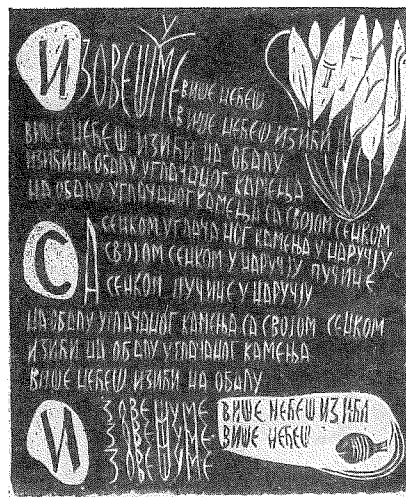 ИЗОВЕШУМЕ ВИШЕ НЕЋЕШ
ВИШЕ НЕЋЕШ ИЗИЋИ
ВИШЕ НЕЋЕШ ИЗИЋИ НА ОБАЛУ
ИЗИЋИ НА ОБАЛУ УГЛАЧАНОГ КАМЕЊА
НА ОБАЛУ УГЛАЧАНОГ КАМЕЊА СА СВОЈОМ СЕНКОМ
СА СЕНКОМ УГЛАЧАНОГ КАМЕЊА У НАРУЧЈУ
СВОЈОМ СЕНКОМ У НАРУЧЈУ ПУЧИНЕ
СЕНКОМ ПУЧИНЕ У НАРУЧЈУ
НА ОБАЛУ УГЛАЧАНОГ КАМЕЊА СА СВОЈОМ СЕНКОМ
ИЗИЋИ НА ОБАЛУ УГЛАЧАНОГ КАМЕЊА
ВИШЕ НЕЋЕШ ИЗИЋИ НА ОБАЛУ
И ЗОВЕШУМЕ ВИШЕ НЕЋЕШ ИЗИЋИ
ЗОВЕШУМЕ ВИШЕ НЕЋЕШ
ЗОВЕШУМЕ
ЗОВЕШУМЕ